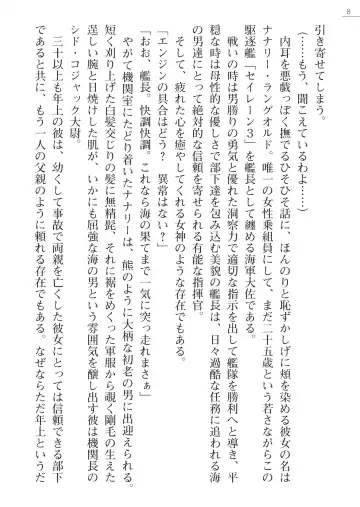 8
引き寄せてしまう。
（……もう、聞こえているわよ……）
内耳を悪戯っぽく撫でるひそひそ話に、ほんのりと恥ずかしげに頬を染める彼女の名は
ナナリー・ラングオルド。唯一の女性乗組員にして、まだ二十五歳という若さながら
駆逐艦「セイレーン３」を艦長として纏める海軍大佐である。
戦いの時は男勝りの勇気と優れた洞察力で適切な指示を出して艦隊を勝利へと導き、平
穏な時は母性的な優しさで部下達を包み込む美貌の艦長は、日々過酷な任務に追われる海
の男達にとって絶対的な信頼を寄せられる有能な指揮官。
そして、疲れた心を癒やしてくれる女神のような存在でもある。
「エンジンの具合はどう？　異常はない？」
「おお、艦長。快調快調。これなら海の果てまで一気に突っ走れまさぁ」
やがて機関室にたどり着いたナナリーは、熊のように大柄な初老の男に出迎えられる。
短く刈り上げた白髪交じりの髪に無精髭、それに裾をめくった軍服から覗く剛毛の生えた
逞しい腕と日焼けした肌が、いかにも屈強な海の男という雰囲気を醸し出す彼は機関長の
シド・コジャック大尉。
三十以上も年上の彼は、幼くして事故で両親を亡くした彼女にとっては信頼できる部下
であると共に、もう一人の父親のように頼れる存在でもある。なぜならただ年上というだ